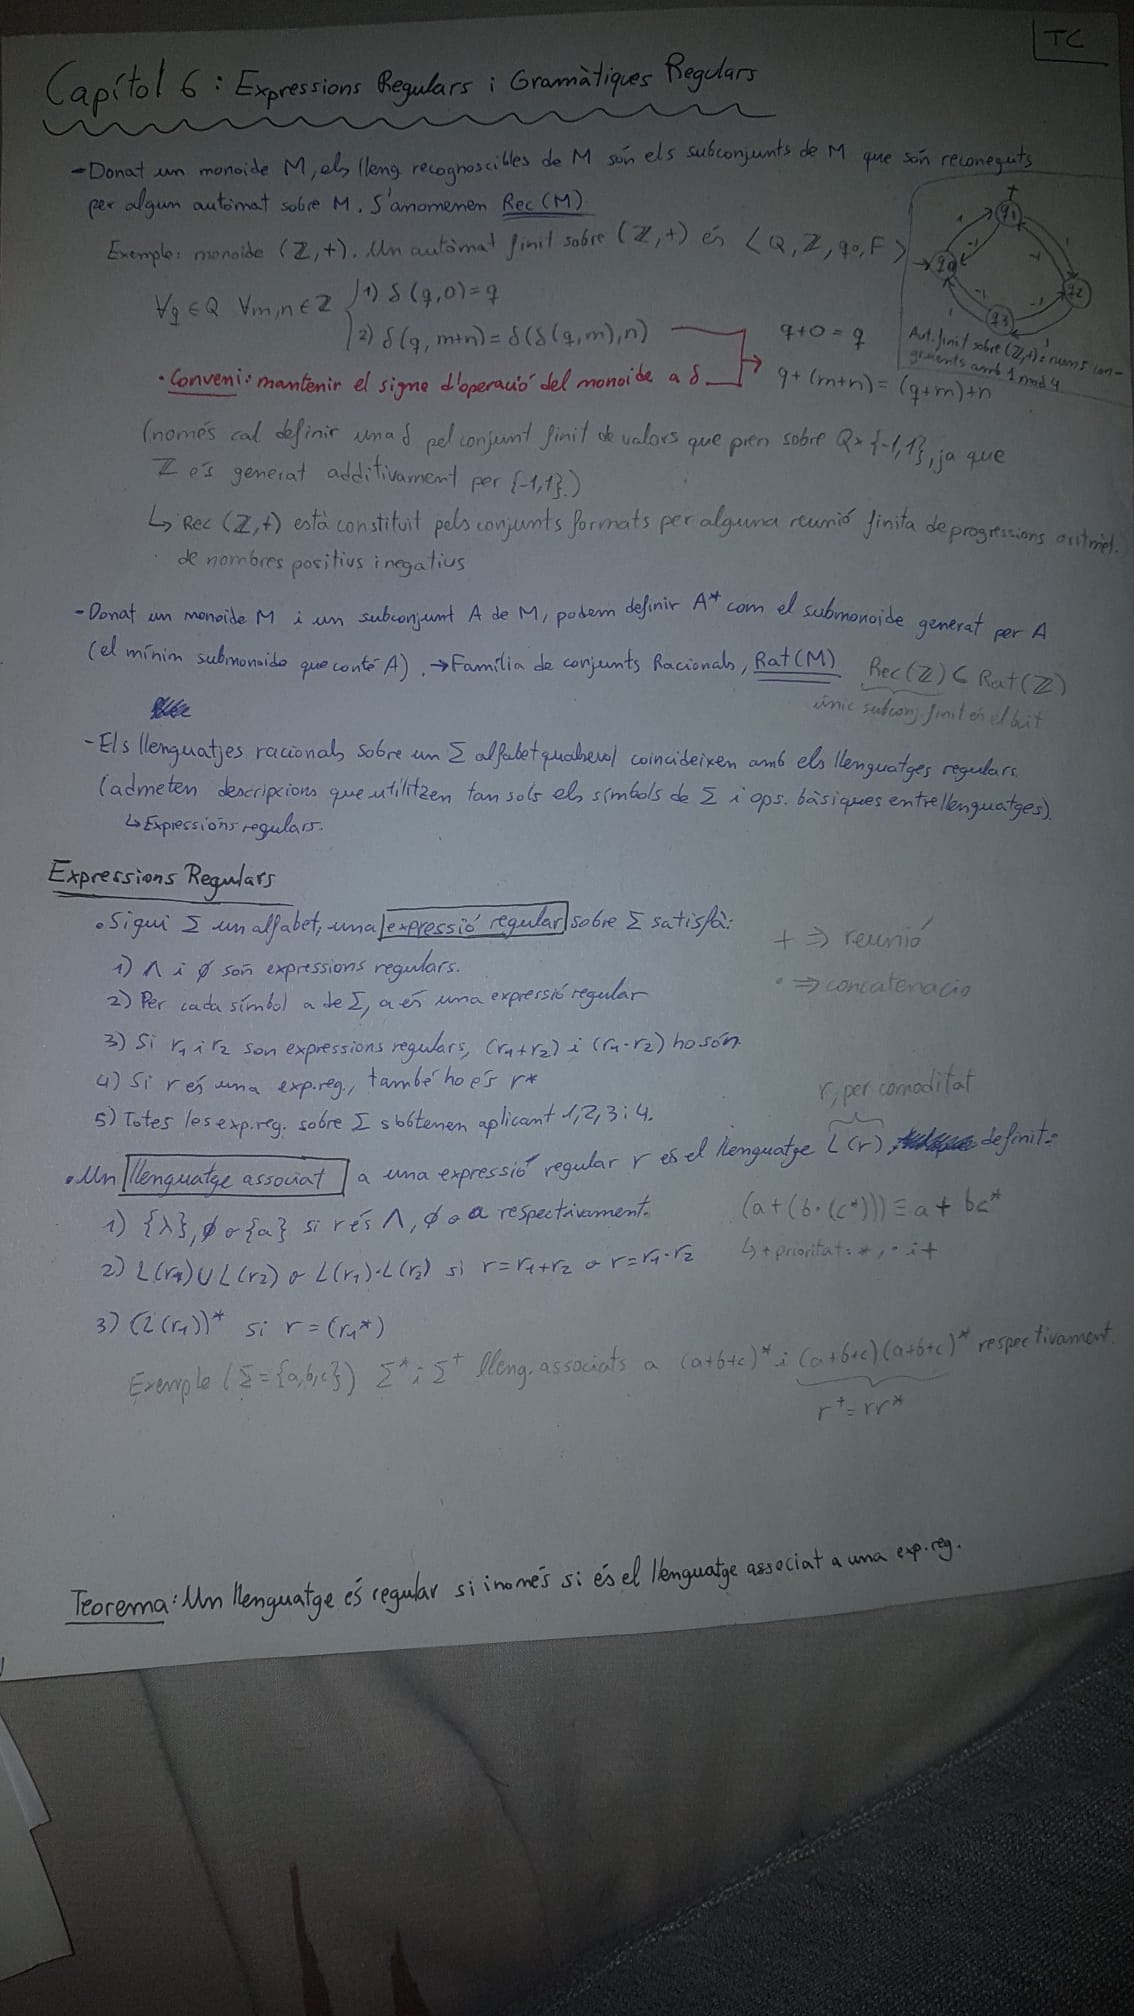 TC
Capítol 6: Expressions Regulars i Gramàtiques Regulars
- Donat un monoide M, els lleng. recognoscibles de M són els subconjunts de M que són reconeguts
per algun autòmat sobre M. S'anomenen Rec(M)
Exemple: monoide (ℤ,+). Un autòmat finit sobre (ℤ,+) és ⟨Q, ℤ, q0, F⟩
q1
q0
q2
q3
1 -1 1 -1 1 -1 1 -1
Aut. finit sobre (ℤ,+): nums con-
gruents amb 1 mod 4
∀q ∈ Q ∀m,n ∈ ℤ { 1) δ(q,0)=q
2) δ(q, m+n) = δ(δ(q,m),n)
q+0 = q
· Conveni: mantenir el signe d'operació del monoide a δ
q+(m+n) = (q+m)+n
(només cal definir una δ pel conjunt finit de valors que pren sobre Q×{-1,1}, ja que
ℤ és generat additivament per {-1,1}.)
↳ Rec(ℤ,+) està constituït pels conjunts formats per alguna reunió finita de progressions aritmèt.
de nombres positius i negatius
- Donat un monoide M i un subconjunt A de M, podem definir A* com el submonoide generat per A
(el mínim submonoide que conté A). → Família de conjunts Racionals, Rat(M) Rec(ℤ) ⊂ Rat(ℤ)
únic subconj. finit és el buit
- Els llenguatjes racionals sobre un Σ alfabet qualsevol coincideixen amb els llenguatges regulars.
(admeten descripcions que utilitzen tan sols els símbols de Σ i ops. bàsiques entre llenguatges).
↳ Expressions regulars.
Expressions Regulars
• Sigui Σ un alfabet, una expressió regular sobre Σ satisfà:
+ ⇒ reunió
1) Λ i ∅ són expressions regulars.
· ⇒ concatenacio
2) Per cada símbol a de Σ, a és una expressió regular
3) Si r1 i r2 son expressions regulars, (r1+r2) i (r1·r2) ho són.
4) Si r és una exp.reg., també ho és r*
r, per comoditat
5) Totes les exp.reg. sobre Σ s'obtenen aplicant 1,2,3 i 4.
• Un llenguatge associat a una expressió regular r és el llenguatge L(r) definit:
1) {λ}, ∅ o {a} si r és Λ, ∅ o a respectivament.
(a+(b·(c*))) ≡ a+bc*
2) L(r1)∪L(r2) o L(r1)·L(r2) si r=r1+r2 o r=r1·r2
↳ + prioritat: *, · i +
3) (L(r1))* si r=(r1*)
Exemple (Σ={a,b,c}) Σ* i Σ⁺ lleng. associats a (a+b+c)* i (a+b+c)(a+b+c)* respectivament.
r⁺=rr*
Teorema: Un llenguatge és regular si i només si és el llenguatge associat a una exp.reg.